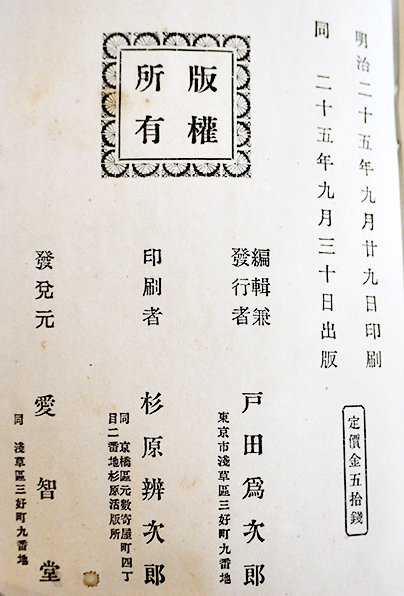 明治二十五年九月廿九日印刷
同 二十五年九月三十日出版
定價金五拾錢
版權
所有
編輯兼
發行者
戸田爲次郎
東京市淺草區三好町九番地
印刷者
杉原辨次郎
同 京橋區元數寄屋町四丁
目二番地杉原活版所
發兌元
愛智堂
同 淺草區三好町九番地